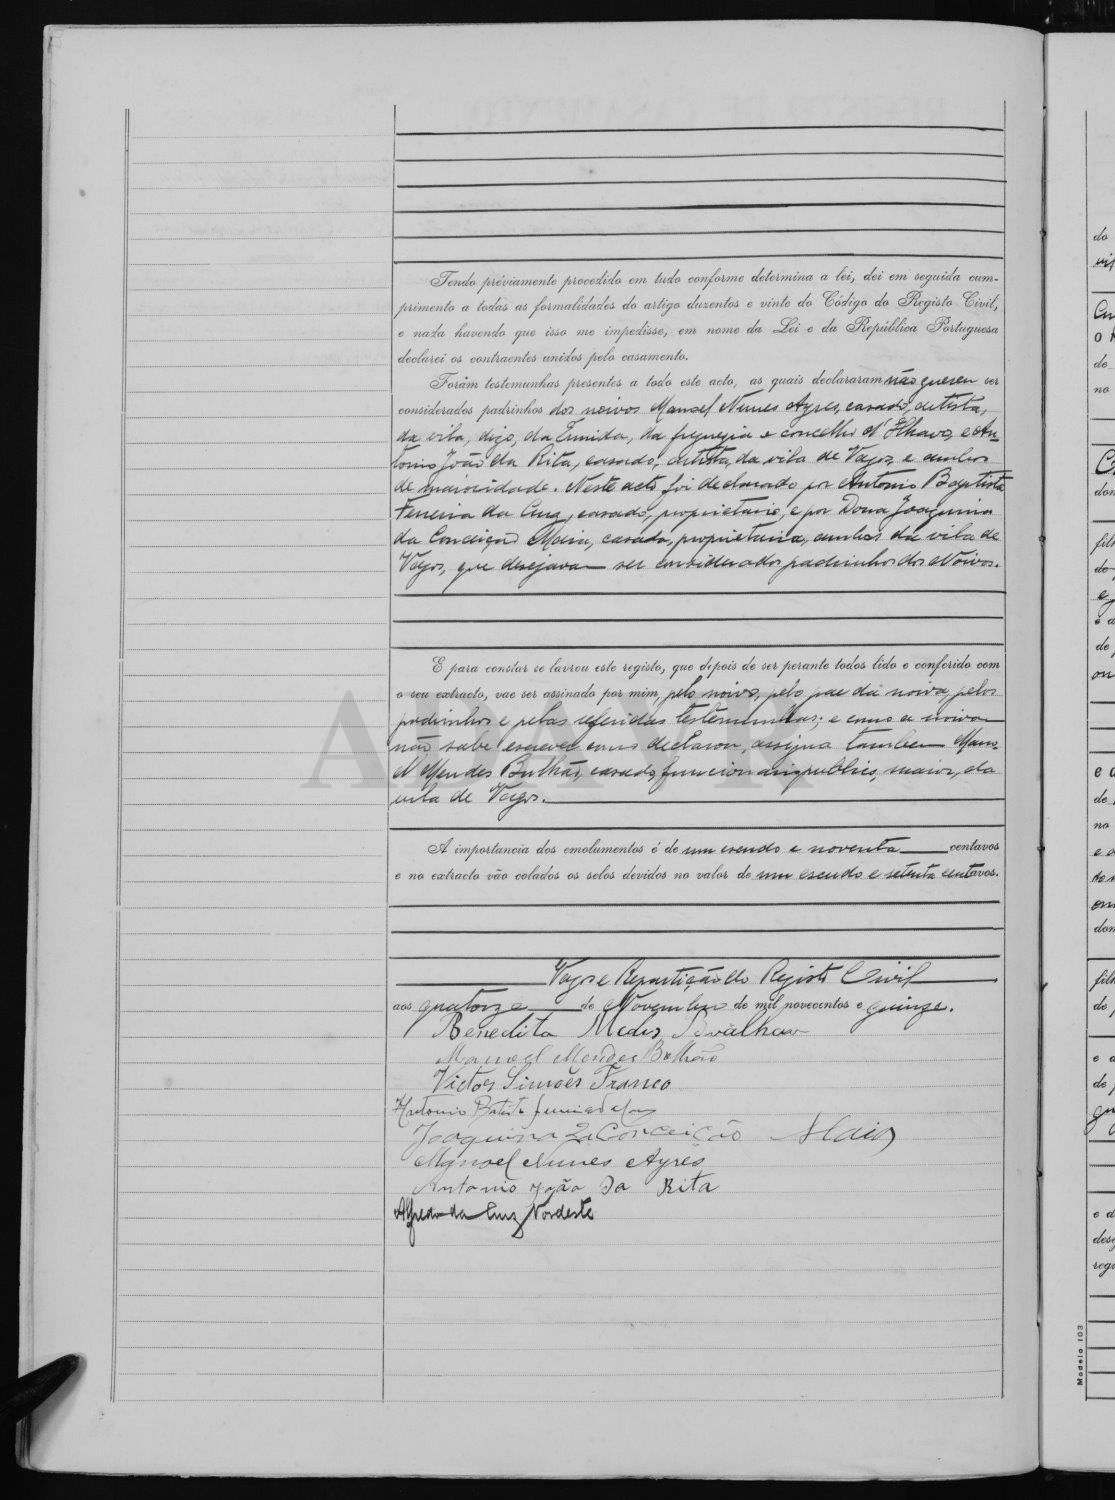 Tendo préviamente procedido em tudo conforme determina a lei, dei em seguida cum-
primento a todas as formalidades do artigo duzentos e vinte do Código do Registo Civil,
e nada havendo que isso me impedisse, em nome da Lei e da República Portuguesa
declarei os contraentes unidos pelo casamento.
Foram testemunhas presentes a todo este acto, as quais declararam não querem ser
considerados padrinhos dos noivos Manoel Nunes Ayres, casado, artista,
da vila, digo, da Ermida, da freguezia e concelho d'Ilhavo, e An-
tonio João da Rita, casado, artista, da vila de Vagos, e ambos
de maioridade. Neste acto foi declarado por Antonio Baptista
Ferreira da Cruz, casado, proprietario, e por Dona Joaquina
da Conceição Maia, casada, proprietaria, ambos da vila de
Vagos, que desejavam ser considerados padrinhos dos Noivos.
E para constar se lavrou este registo, que depois de ser perante todos lido e conferido com
o seu extracto, vae ser assinado por mim, pelo noivo, pelo pae da noiva, pelos
padrinhos e pelas referidas testemunhas; e como a noiva
não sabe escrever como declarou, assigna tambem Mano-
el Mendes Bulhão, casado, funcionario publico, maior, da
vila de Vagos.
A importancia dos emolumentos é de um escudo e noventa centavos
e no extracto vão colados os selos devidos no valor de um escudo e setenta centavos.
Vagos e Repartição do Registo Civil
aos quatorze de Novembro de mil novecentos e quinze.
Benedito
Manoel Mendes Bulhão
Victor Simões Franco
Antonio Batista Ferreira da Cruz
Joaquina da Conceição Maia
Manoel Nunes Ayres
Antonio João Da Rita
Alfredo da Cruz Nordeste
ADAVR
Modelo 103